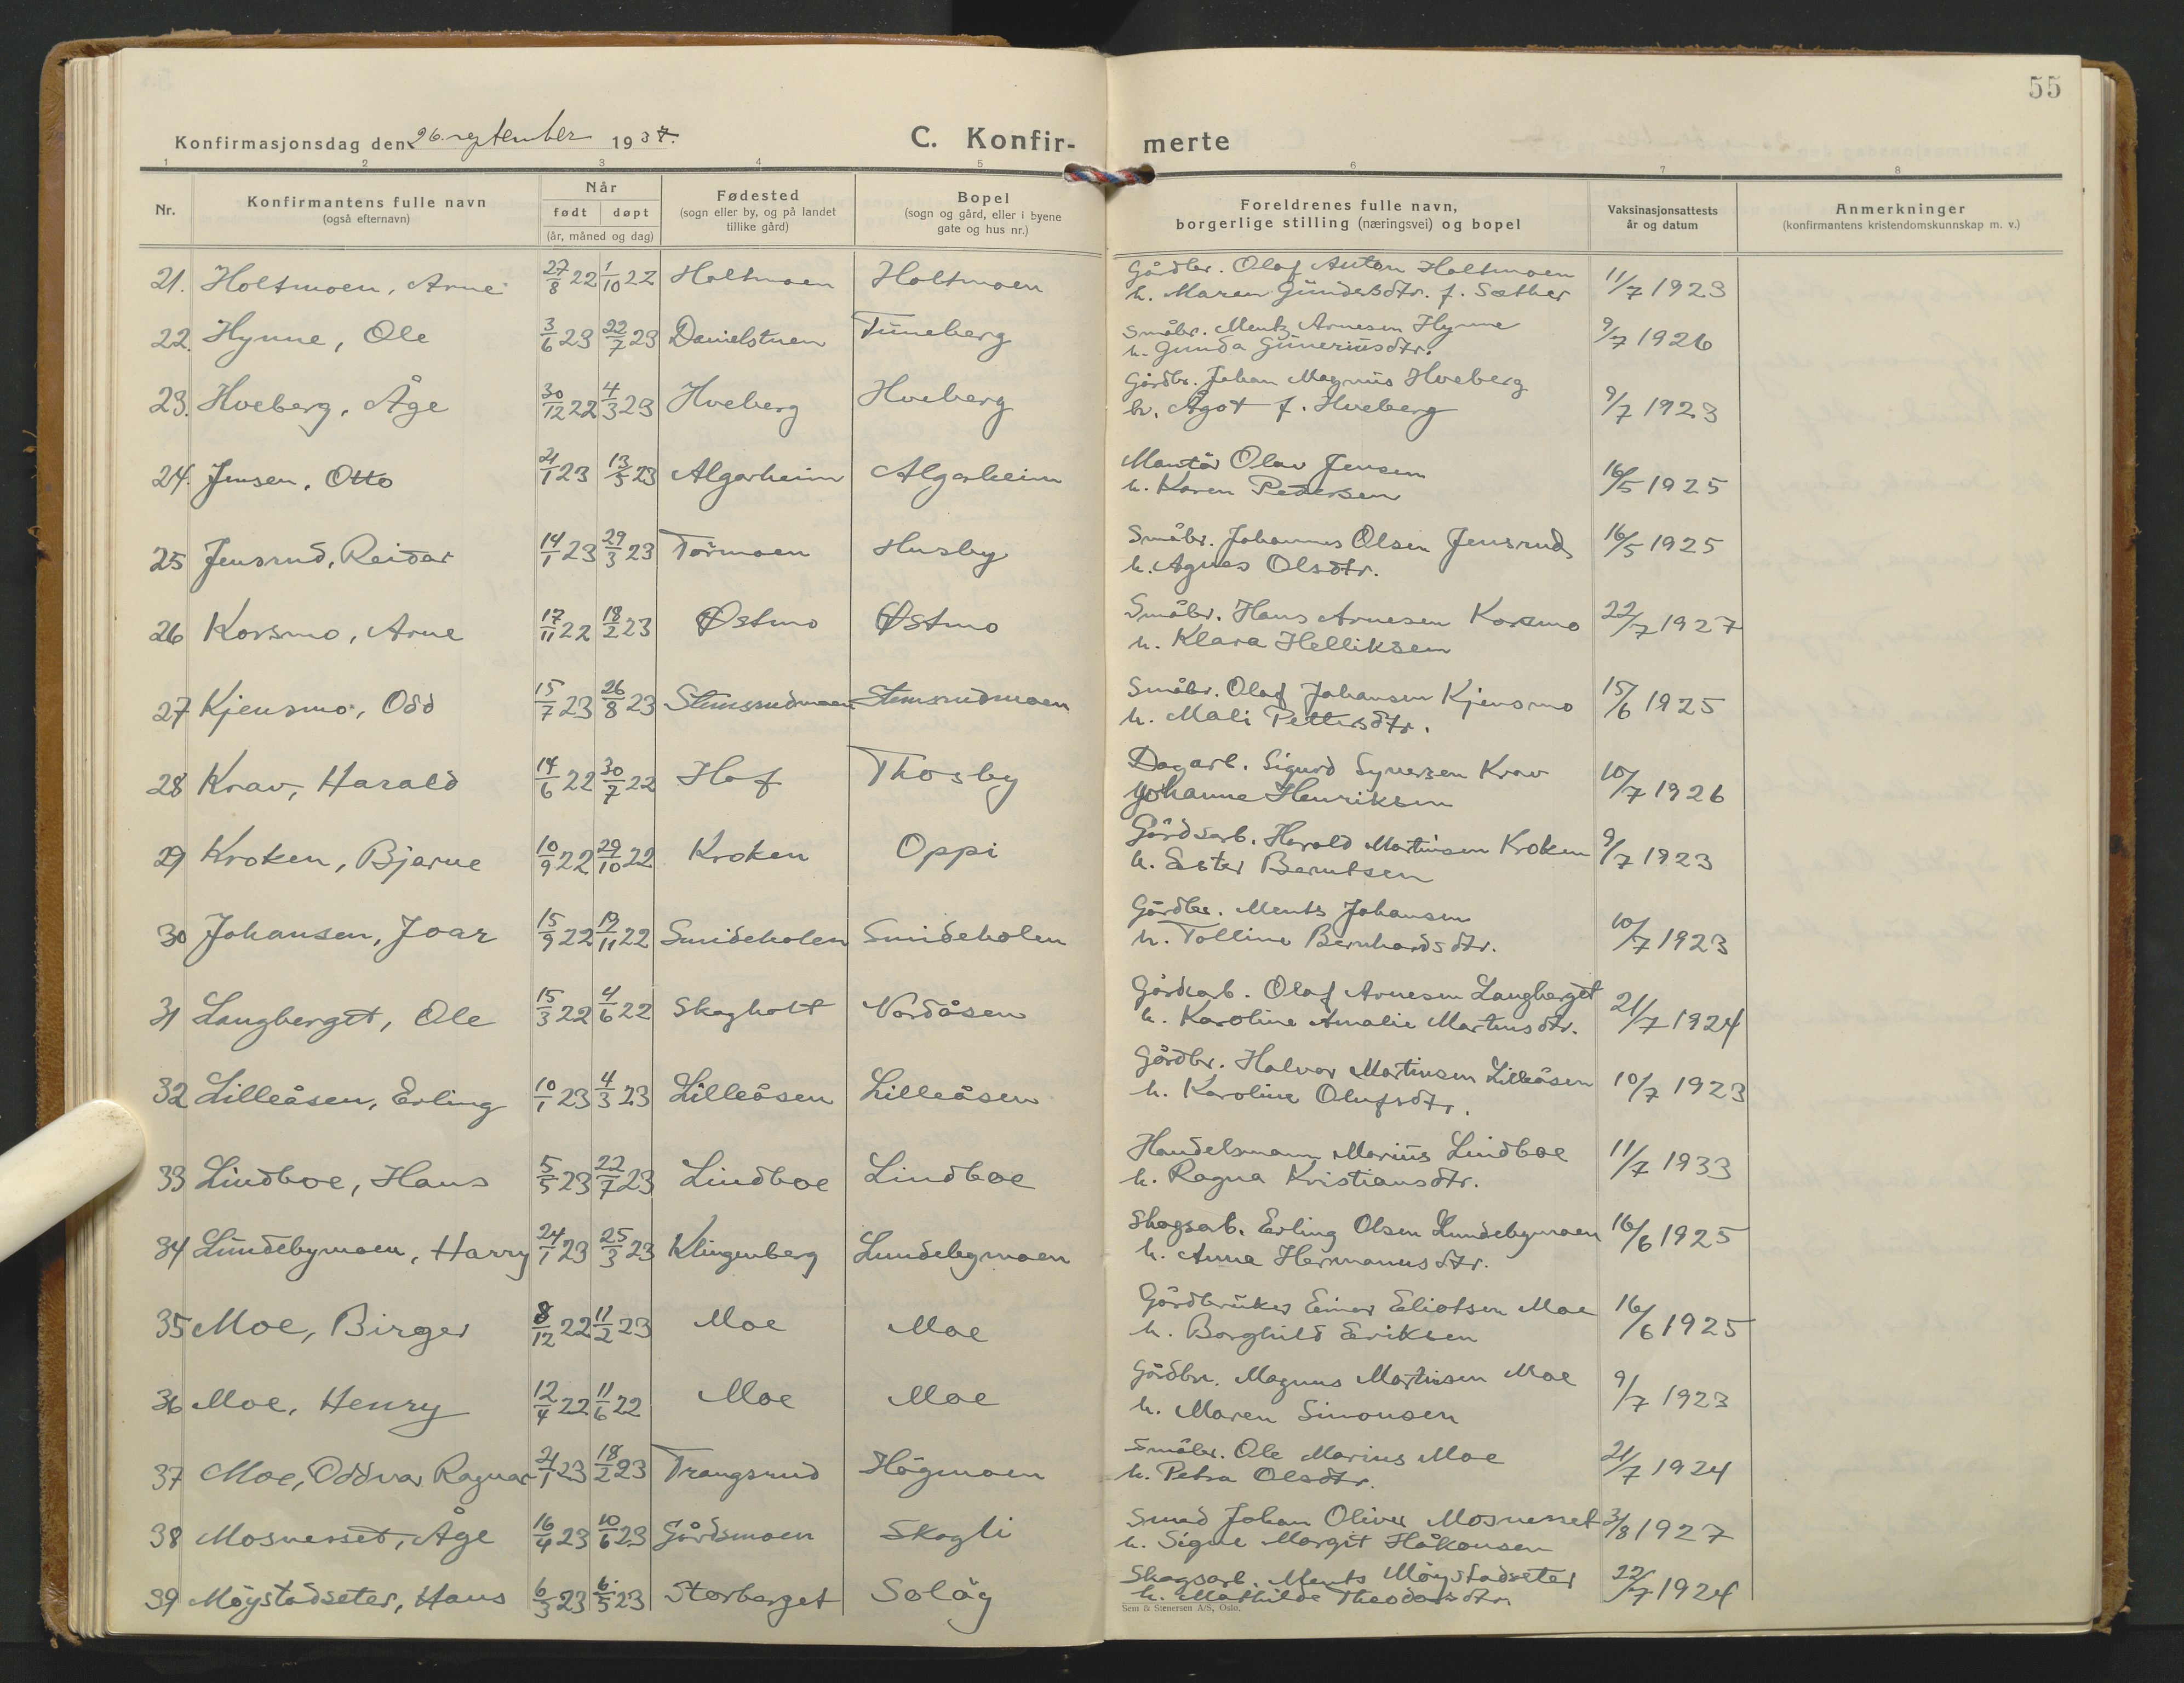 55
Konfirmasjonsdag den 26. september 1937.
C. Konfir- merte
1 2 3 4 5 6 7 8
Nr.
Konfirmantens fulle navn
(også efternavn)
Når
født døpt
(år, måned og dag)
Fødested
(sogn eller by, og på landet
tillike gård)
Bopel
(sogn og gård, eller i byene
gate og hus nr.)
Foreldrenes fulle navn,
borgerlige stilling (næringsvei) og bopel
Vaksinasjonsattests
år og datum
Anmerkninger
(konfirmantens kristendomskunnskap m. v.)
21. Holtmoen, Arne 27/8 22 1/10 22 Holtmoen Holtmoen Gårdbr. Olaf Anton Holtmoen 11/7 1923
h. Maren Gundersdtr. f. Sæther
22. Hynne, Ole 3/6 23 22/7 23 Danielstuen Tuneberg Småbr. Mentz Arnesen Hynne 9/7 1926
h. Gunda Guneriusdtr.
23. Hveberg, Åge 30/12 22 4/3 23 Hveberg Hveberg Gårdbr. Johan Magnus Hveberg 9/7 1923
h. Ågot f. Hveberg
24. Jensen, Otto 21/1 23 13/5 23 Algarheim Algarheim Montør Olav Jensen 16/5 1925
h. Karen Pedersen
25 Jensrud, Reidar 14/1 23 29/3 23 Tørmoen Husby Småbr. Johannes Olsen Jensrud 16/5 1925
h. Agnes Olsdtr.
26 Korsmo, Arne 17/11 22 18/2 23 Østmo Østmo Småbr. Hans Arnesen Korsmo 22/7 1927
h. Klara Helliksen
27 Kjensmo, Odd 15/7 23 26/8 23 Stemsrudmoen Stemsrudmoen Småbr. Olaf Johansen Kjensmo 15/6 1925
h. Mali Pettersdtr.
28 Krav, Harald 14/6 22 30/7 22 Hof Thosby Dagarb. Sigurd Syversen Krav 10/7 1926
Johanne Henriksen
29 Kroken, Bjarne 10/9 22 29/10 22 Kroken Oppi Gårdsarb. Harald Martinsen Kroken 9/7 1923
h. Ester Berntsen
30 Johansen, Joar 15/9 22 19/11 22 Smideholen Smideholen Gårdbr. Ments Johansen 10/7 1923
h. Tolline Bernhardsdtr.
31 Langberget, Ole 15/3 22 4/6 22 Skogholt Nordåsen Gårdsarb. Olaf Arnesen Langberget 21/7 1924
h. Karoline Amalie Martinsdtr.
32 Lilleåsen, Erling 10/1 23 4/3 23 Lilleåsen Lilleåsen Gårdbr. Halvor Martinsen Lilleåsen 10/7 1923
h. Karoline Olufsdtr.
33 Lindboe, Hans 5/5 23 22/7 23 Lindboe Lindboe Handelsmann Marius Lindboe 11/7 1933
h. Ragna Kristiansdtr.
34 Lundebymoen, Harry 24/1 23 25/3 23 Klingenberg Lundebymoen Skogsarb. Erling Olsen Lundebymoen 16/6 1925
h. Anna Hermanusdtr.
35 Moe, Birger 8/12 22 11/2 23 Moe Moe Gårdbruker Einar Eliotsen Moe 16/6 1925
h. Borghild Eriksen
36 Moe, Henry 12/4 22 11/6 22 Moe Moe Gårdbr. Magnus Martinsen Moe 9/7 1923
h. Maren Simonsen
37 Moe, Oddvar Ragnar 21/1 23 18/2 23 Trangsrud Högmoen Småbr. Ole Marius Moe 21/7 1924
h. Petra Olsdtr.
38 Mosnesset, Åge 16/4 23 10/6 23 Gårdsmoen Skogli Smed Johan Oliver Mosnesset 3/8 1927
h. Signe Margit Håkonsen
39 Møystadseter, Hans 6/3 23 6/5 23 Storberget Soläg Skogsarb. Ments Møystadseter 22/7 1924
h. Mathilde Theodorsdtr.
Sem & Stenersen A/S, Oslo.